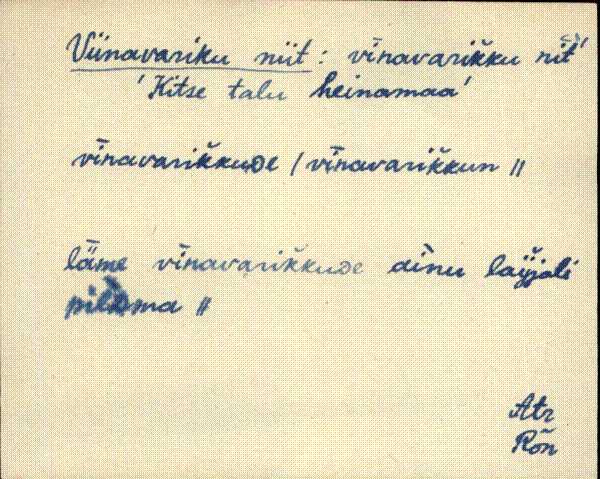 Viinavariku niit: vīnavarik̆ku nīt̆
'Kitse talu heinamaa'
vīnavarik̆kuɒe / vīnavarik̆kun //
lǟme vīnavarik̆kuɒe aīnu
//
Atr
Rõn